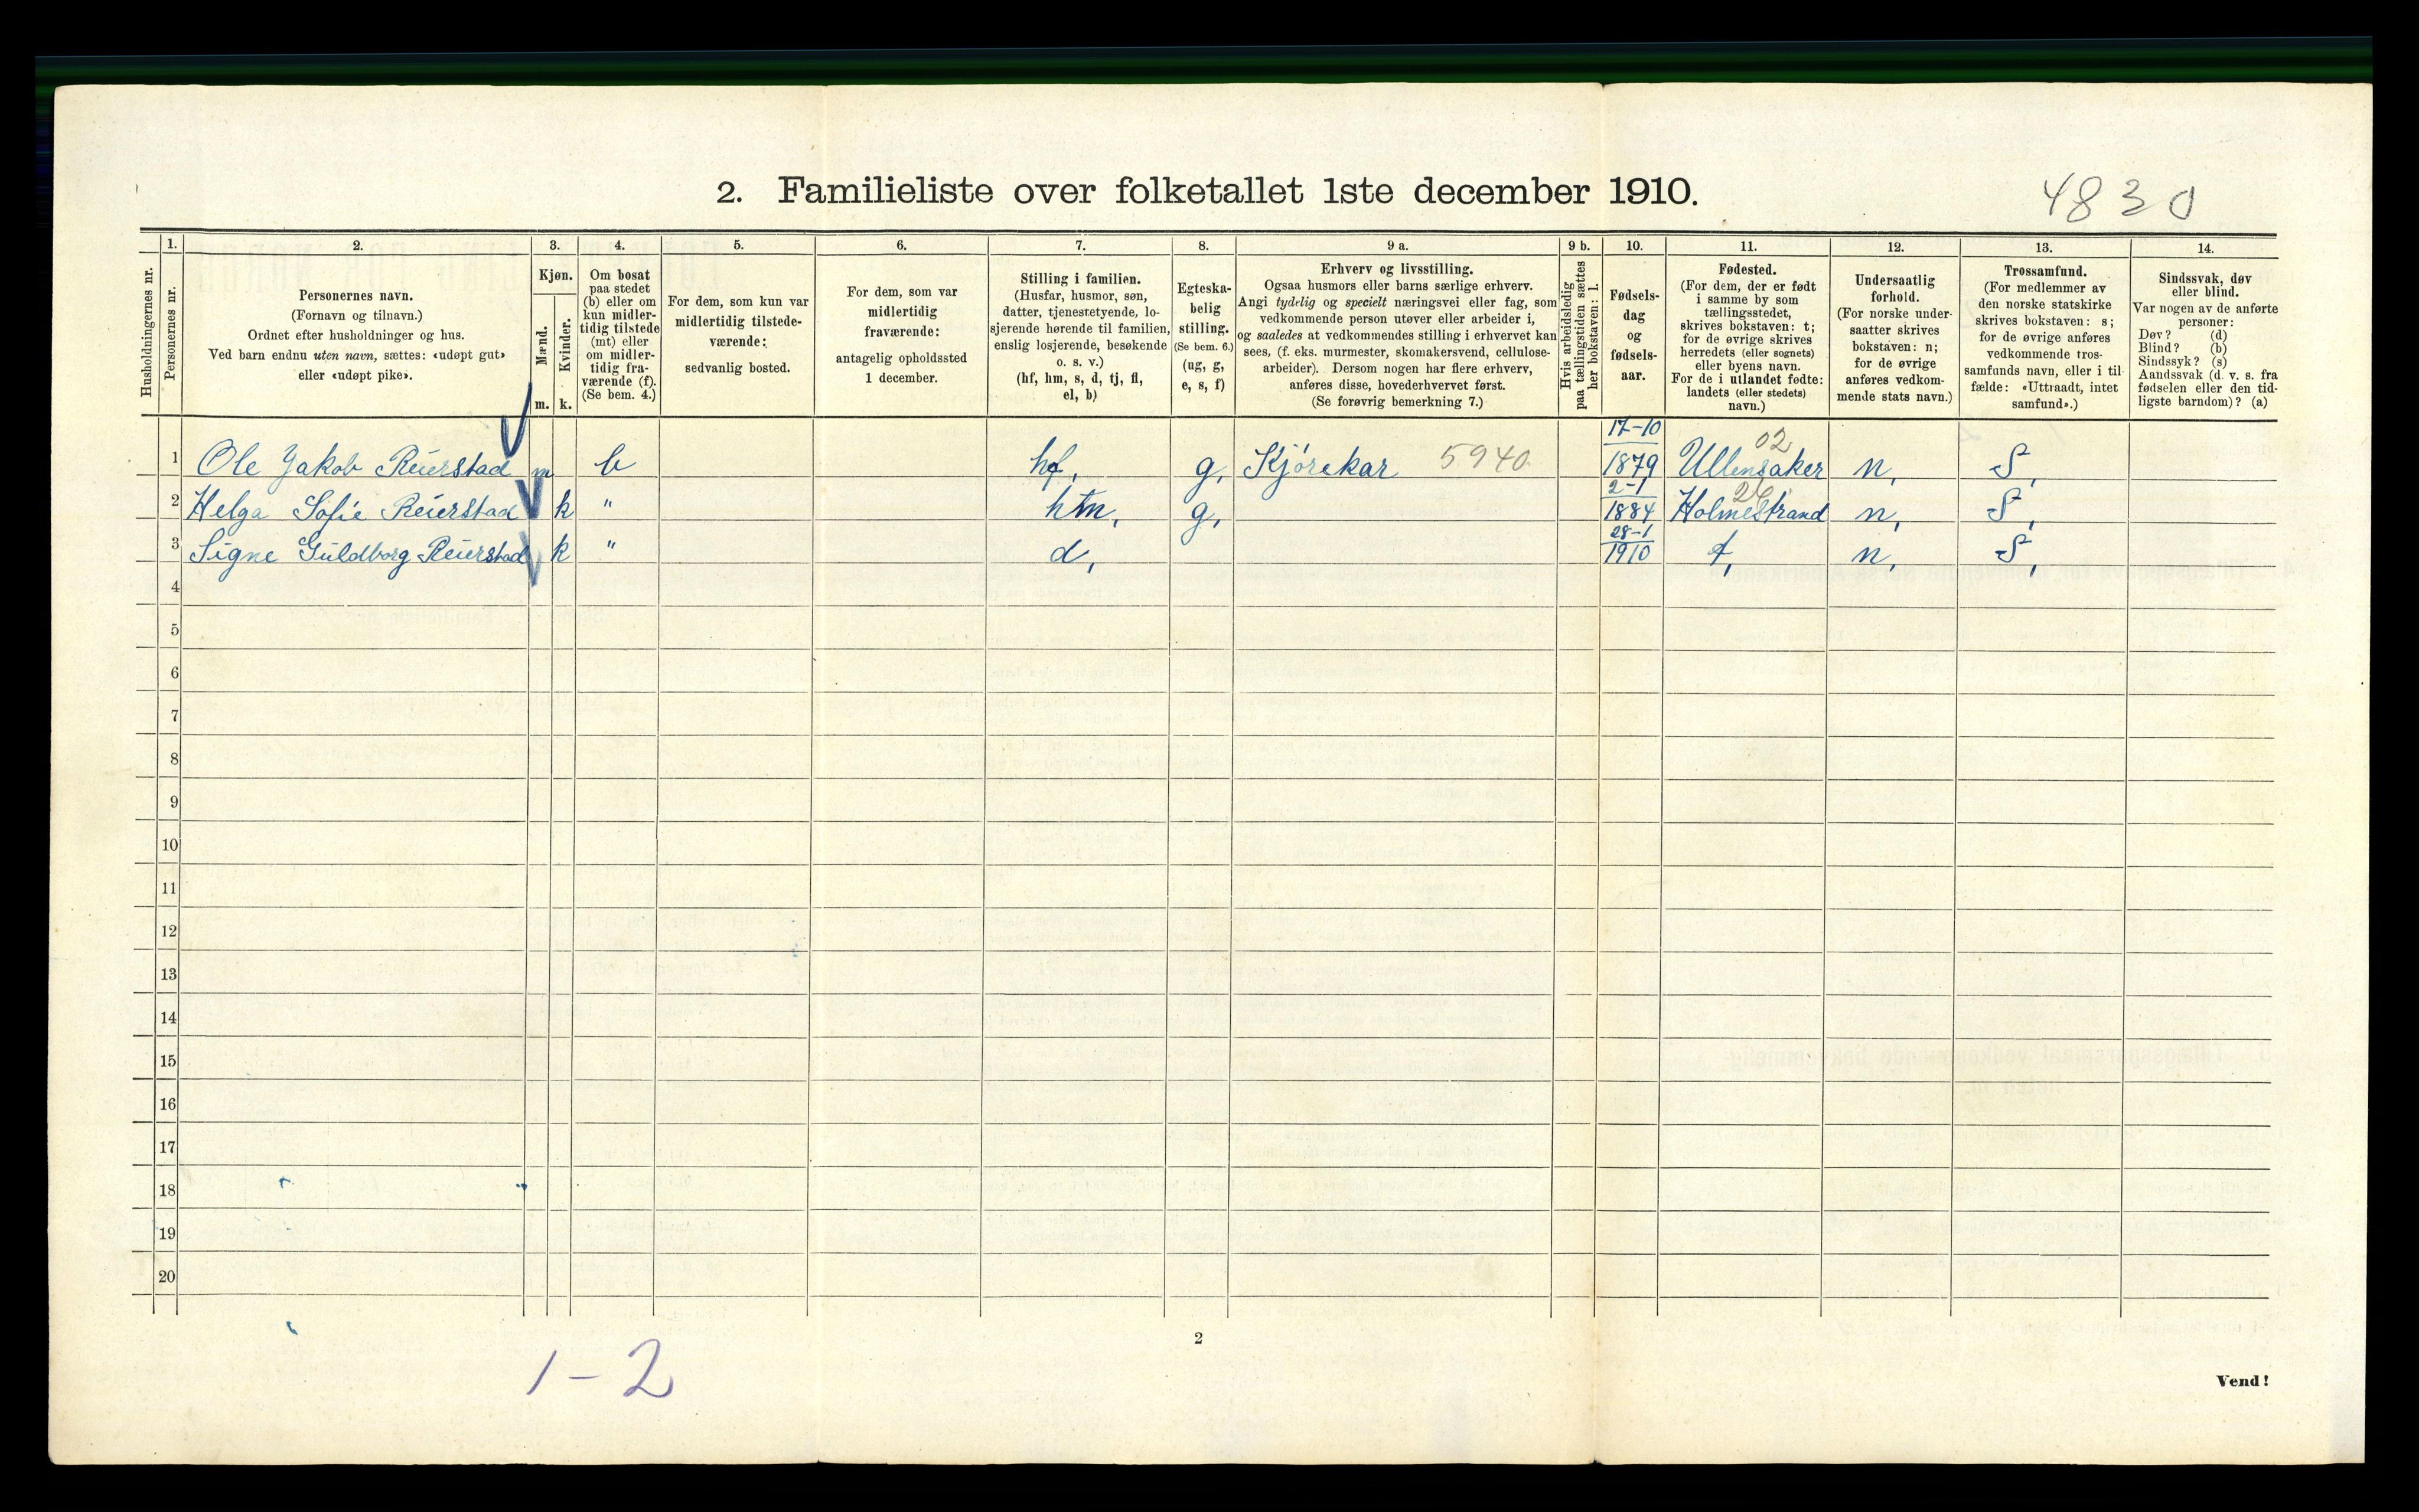 2. Familieliste over folketallet 1ste december 1910.
4830
Husholdningernes nr.
1.
Personernes nr.
2.
Personernes navn.
(Fornavn og tilnavn.)
Ordnet efter husholdninger og hus.
Ved barn endnu uten navn, sættes: «udøpt gut»
eller «udøpt pike».
3.
Kjøn.
Mænd.
m.
Kvinder.
k.
4.
Om bosat
paa stedet
(b) eller om
kun midler-
tidig tilstede
(mt) eller
om midler-
tidig fra-
værende (f).
(Se bem. 4.)
5.
For dem, som kun var
midlertidig tilstede-
værende:
sedvanlig bosted.
6.
For dem, som var
midlertidig
fraværende:
antagelig opholdssted
1 december.
7.
Stilling i familien.
(Husfar, husmor, søn,
datter, tjenestetyende, lo-
sjerende hørende til familien,
enslig losjerende, besøkende
o. s. v.)
(hf, hm, s, d, tj, fl,
el, b)
8.
Egteska-
belig
stilling.
(Se bem. 6.)
(ug, g,
e, s, f)
9 a.
Erhverv og livsstilling.
Ogsaa husmors eller barns særlige erhverv.
Angi tydelig og specielt næringsvei eller fag, som
vedkommende person utøver eller arbeider i,
og saaledes at vedkommendes stilling i erhvervet kan
sees, (f. eks. murmester, skomakersvend, cellulose-
arbeider). Dersom nogen har flere erhverv,
anføres disse, hovederhvervet først.
(Se forøvrig bemerkning 7.)
9 b.
Hvis arbeidsledig
paa tællingstiden sættes
her bokstaven: l.
10.
Fødsels-
dag
og
fødsels-
aar.
11.
Fødested.
(For dem, der er født
i samme by som
tællingsstedet,
skrives bokstaven: t;
for de øvrige skrives
herredets (eller sognets)
eller byens navn.
For de i utlandet fødte:
landets (eller stedets)
navn.)
12.
Undersaatlig
forhold.
(For norske under-
saatter skrives
bokstaven: n;
for de øvrige
anføres vedkom-
mende stats navn.)
13.
Trossamfund.
(For medlemmer av
den norske statskirke
skrives bokstaven: s;
for de øvrige anføres
vedkommende tros-
samfunds navn, eller i til-
fælde: «Uttraadt, intet
samfund».)
14.
Sindssvak, døv
eller blind.
Var nogen av de anførte
personer:
Døv? (d)
Blind? (b)
Sindssyk? (s)
Aandssvak (d. v. s. fra
fødselen eller den tid-
ligste barndom)? (a)
1 Ole Jakob Reierstad m b hf, g, Kjörekar 5940 17-10 1879 Ullensaker 02 n, S,
2 Helga Sofie Reierstad k " hm, g, 2-1 1884 Holmestrand n, S,
3 Signe Guldborg Reierstad k " d, 28-1 1910 t, n, S,
4
5
6
7
8
9
10
11
12
13
14
15
16
17
18
19
20
2
1-2
Vend!